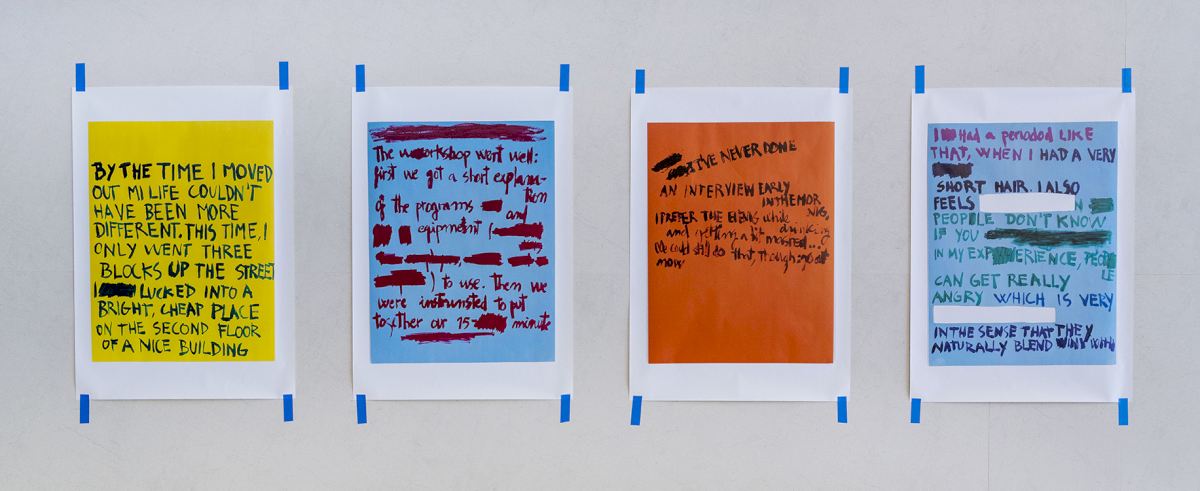 BY THE TIME I MOVED
OUT MI LIFE COULDN'T
HAVE BEEN MORE
DIFFERENT. THIS TIME, I
ONLY WENT THREE
BLOCKS UP THE STREET
I LUCKED INTO A
BRIGHT, CHEAP PLACE
ON THE SECOND FLOOR
OF A NICE BUILDING
The workshop went well:
first we got a short explana-
tion
of the programs
and
equipment (
) to use. Then we
were instrunsted to put
together our 15- minute
I'VE NEVER DONE
AN INTERVIEW EARLY
IN THE MOR
NIG,
I PREFER THE while drinking
and getting a bit
We could still do that, though
now
I Had a periodod LIKE
THAT, WHEN I HAD A VERY
SHORT HAIR. I ALSO
FEELS N
PEOPLE DON'T KNOW
IF YOU
IN MY EXPERIENCE, PEOP
LE
CAN GET REALLY
ANGRY WHICH IS VERY
IN THE SENSE THAT THEY
NATURALLY BLEND with